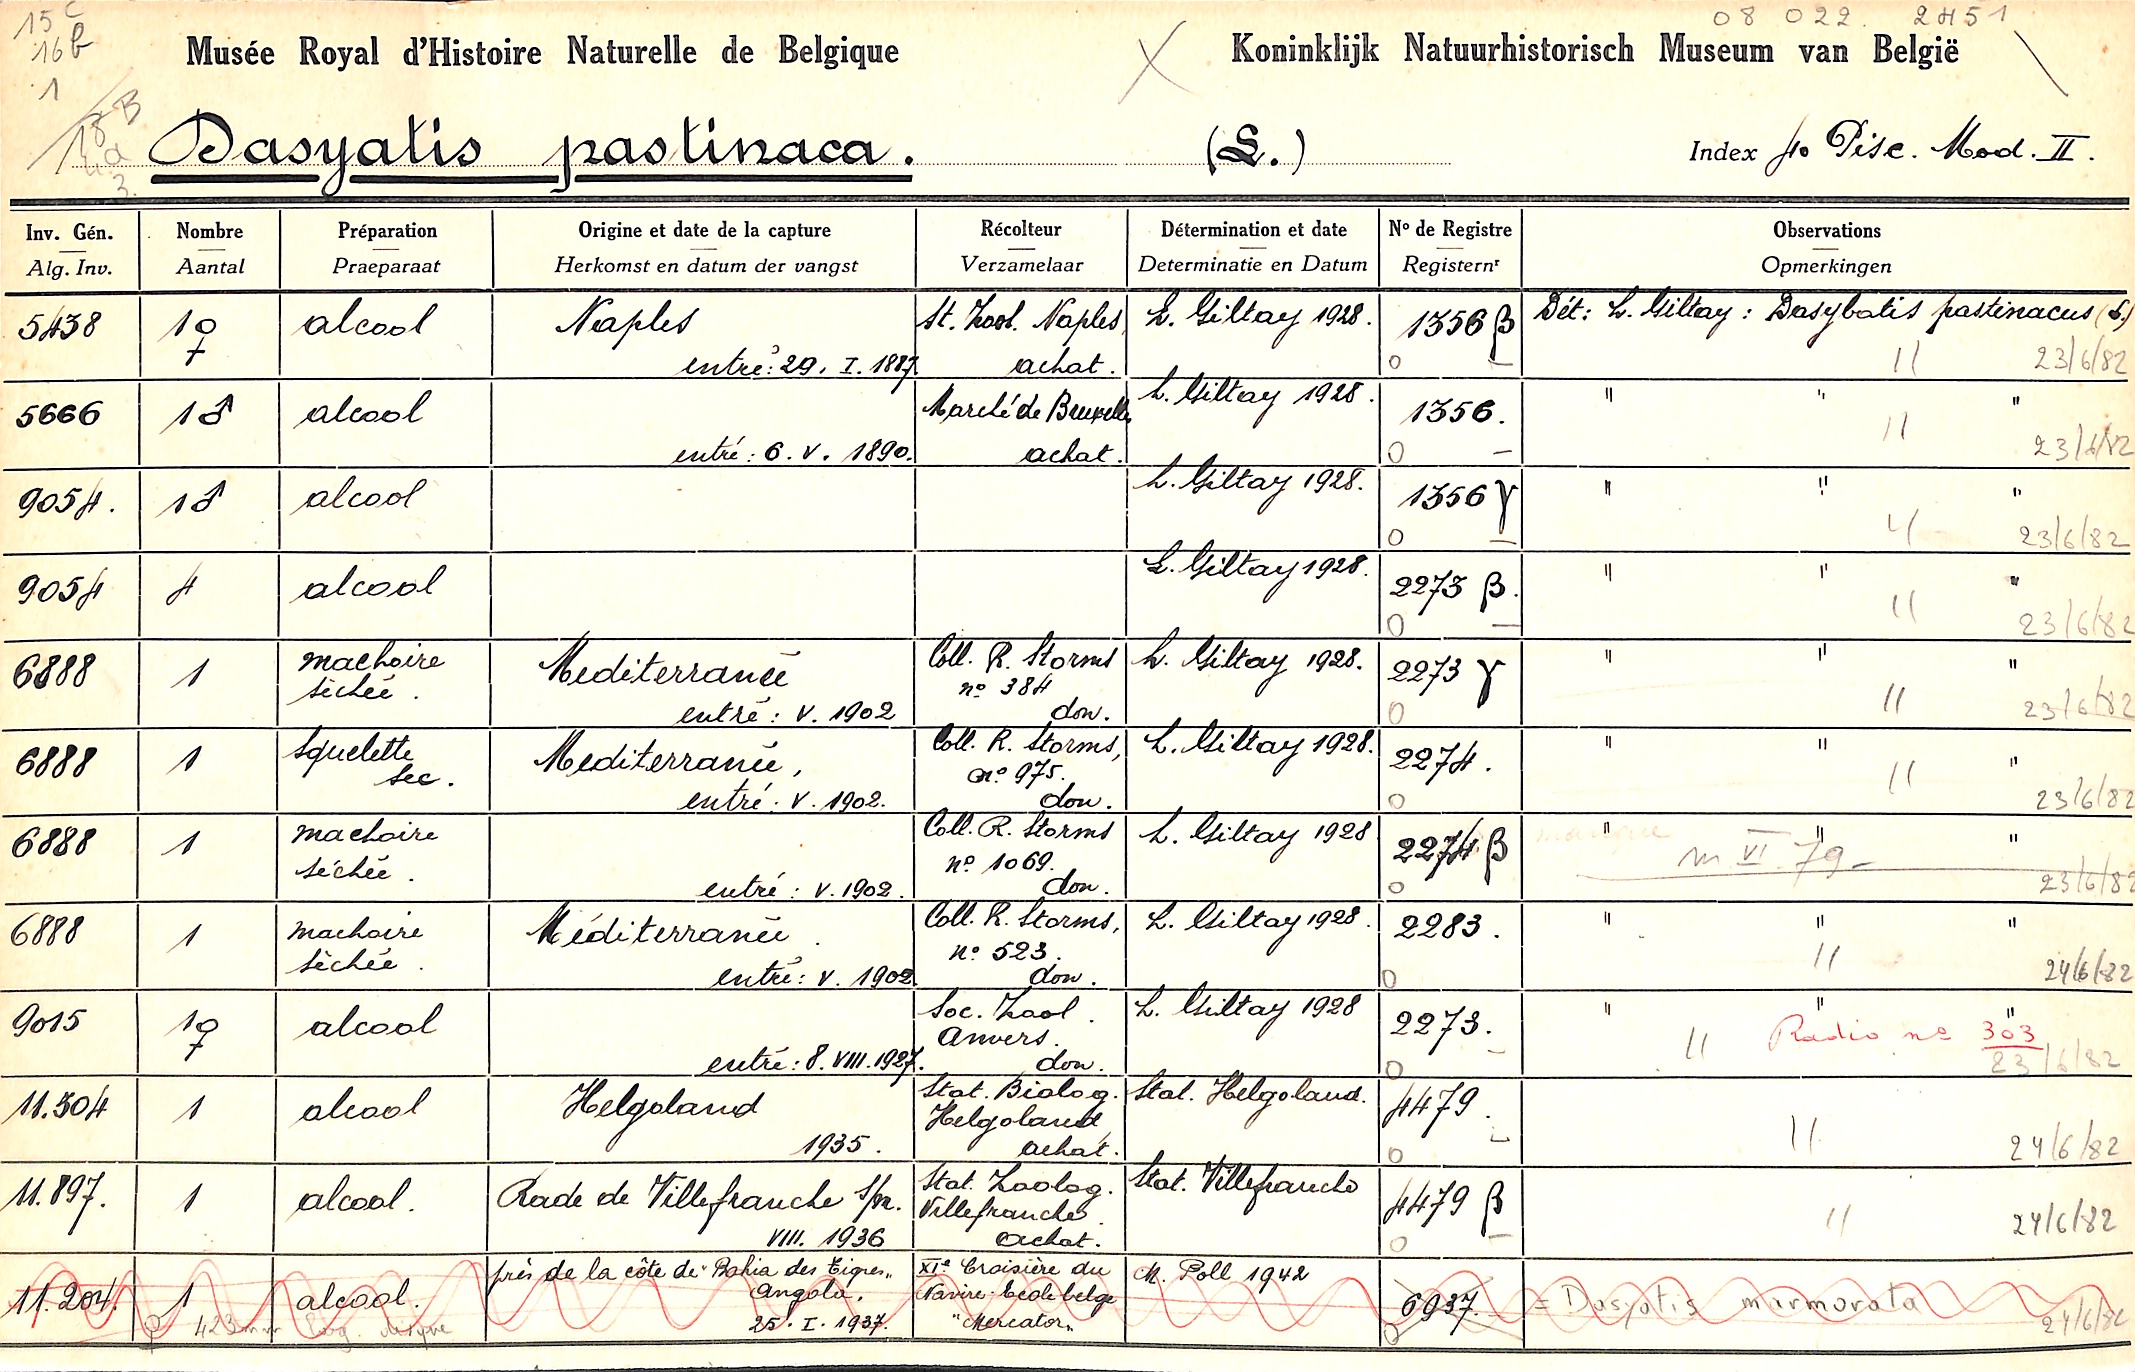 15 c
16 b
1
08 022. 2451
Musée Royal d'Histoire Naturelle de Belgique
Koninklijk Natuurhistorisch Museum van België
18 B
3.
Dasyatis pastinaca. (L.)
Index Pisc. Mod. II.
Inv. Gén. Nombre Préparation Origine et date de la capture Récolteur Détermination et date No de Registre Observations
Alg. Inv. Aantal Praeparaat Herkomst en datum der vangst Verzamelaar Determinatie en Datum Registernr Opmerkingen
5438 1♀ alcool Naples St. Zool. Naples, L. Giltay 1928. 1356 β Dét: L. Giltay: Dasybatis pastinacus (L.)
entré: 29. I. 1887. achat. 0 — // 23/6/82
5666 1♂ alcool Marché de Bruxelles L. Giltay 1928. 1356. " " "
entré: 6. V. 1890. achat. 0 — // 23/6/82
9054. 1♂ alcool L. Giltay 1928. 1356 γ " " "
0 — // 23/6/82
9054 4 alcool L. Giltay 1928. 2273 β. " " "
0 — // 23/6/82
6888 1 machoire Mediterranée Coll. R. Storms L. Giltay 1928. 2273 γ " " "
séchée. no 384
entré: V. 1902 don. 0 // 23/6/82
6888 1 Squelette Mediterranée, Coll. R. Storms, L. Giltay 1928. 2274. " " "
sec. no 975.
entré: V. 1902. don. 0 // 23/6/82
6888 1 machoire Coll. R. Storms L. Giltay 1928 2274 β manque " " "
séchée. no 1069. m VI 79-
entré: V. 1902. don. 0 23/6/82
6888 1 machoire Méditerranée. Coll. R. Storms, L. Giltay 1928. 2283. " " "
séchée. no 523.
entré: V. 1902 don. 0 // 24/6/82
9015 1♀ alcool Soc. Zool. L. Giltay 1928 2273. " " "
Anvers. // Radio no 303
entré: 8. VIII. 1927. don. 0 — 23/6/82
11.304 1 alcool Helgoland Stat. Biolog. Stat. Helgoland. 4479.
Helgoland
1935. achat. 0 — // 24/6/82
11.897. 1 alcool. Rade de Villefranche s/m. Stat. Zoolog. Stat. Villefranche 4479 β
Villefranche.
VIII. 1936 achat. 0 — // 24/6/82
11.204. 1 alcool. près de la côte de "Bahia des Tigres" XIe Croisière du M. Poll 1942 6937. = Dasyatis marmorata
Angola. Navire-Ecole belge
♀ 423 mm 25. I. 1937. "Mercator" 0 24/6/82